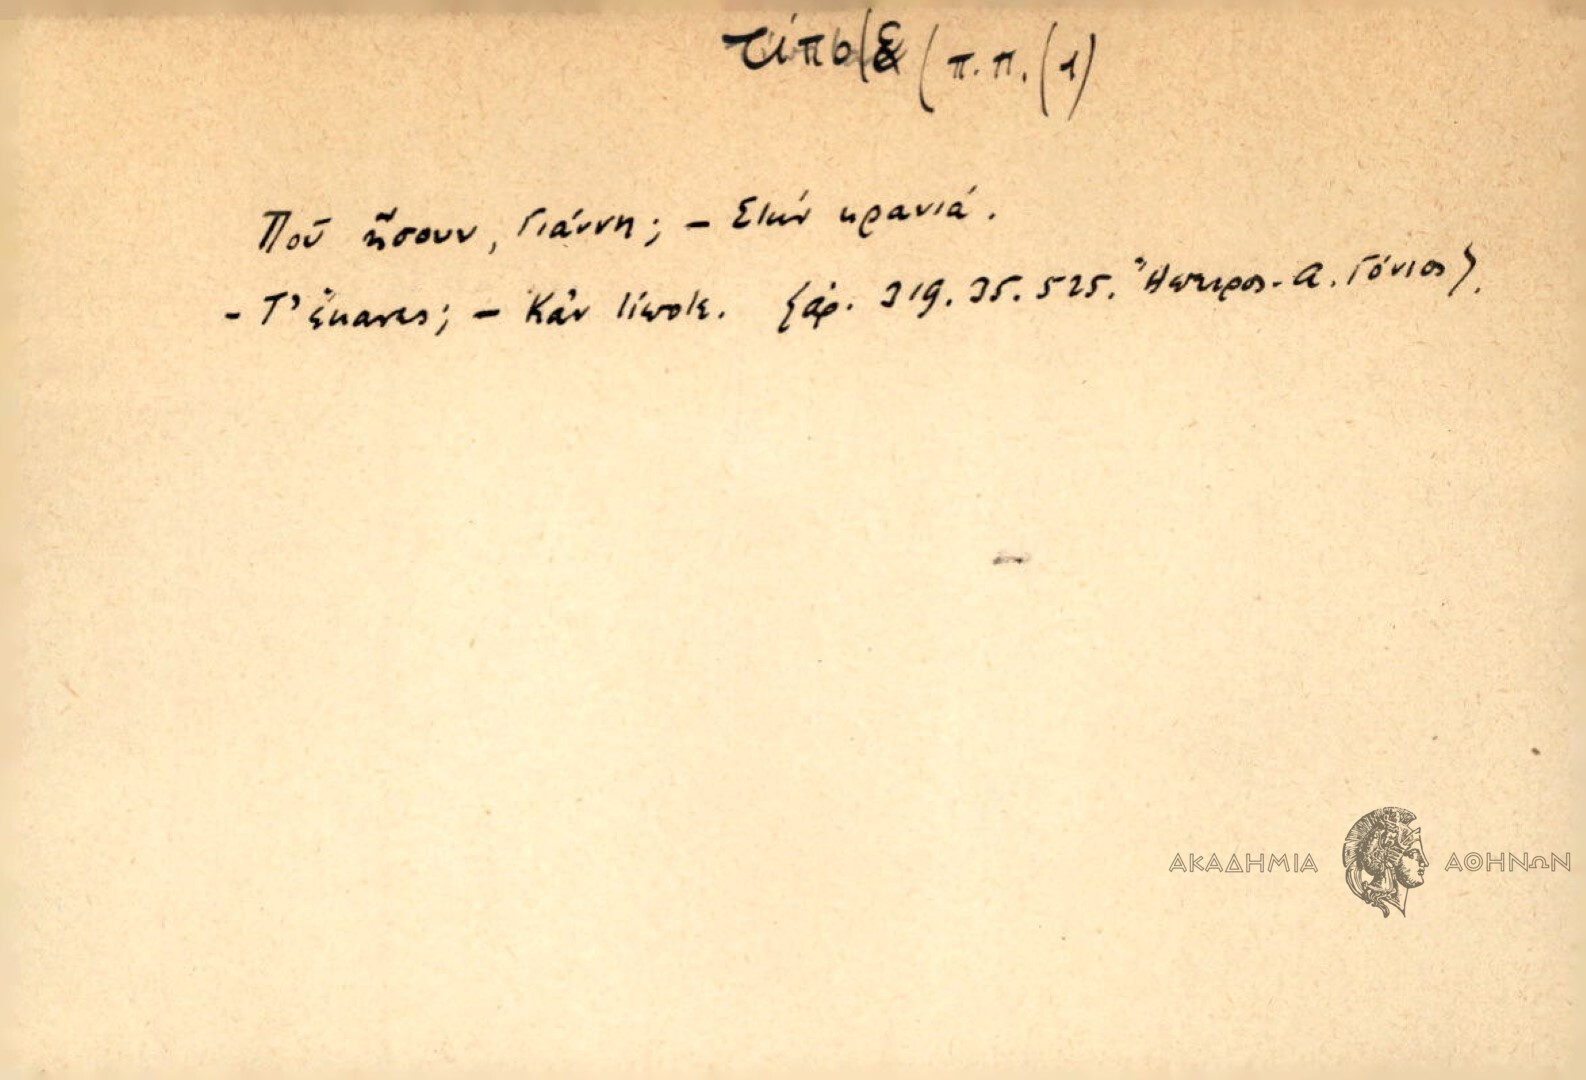 τίποτε (π.π. (1)
Ποῦ ἤσουν, Γιάννη; – Στὴν κρανιά.
– Τ' ἔκανες; – Κἂν τίποτε. {ἀρ. 319. 35. 525. Ἤπειρος. Α. Γόνιος}.
ΑΚΑΔΗΜΙΑ ΑΘΗΝΩΝ